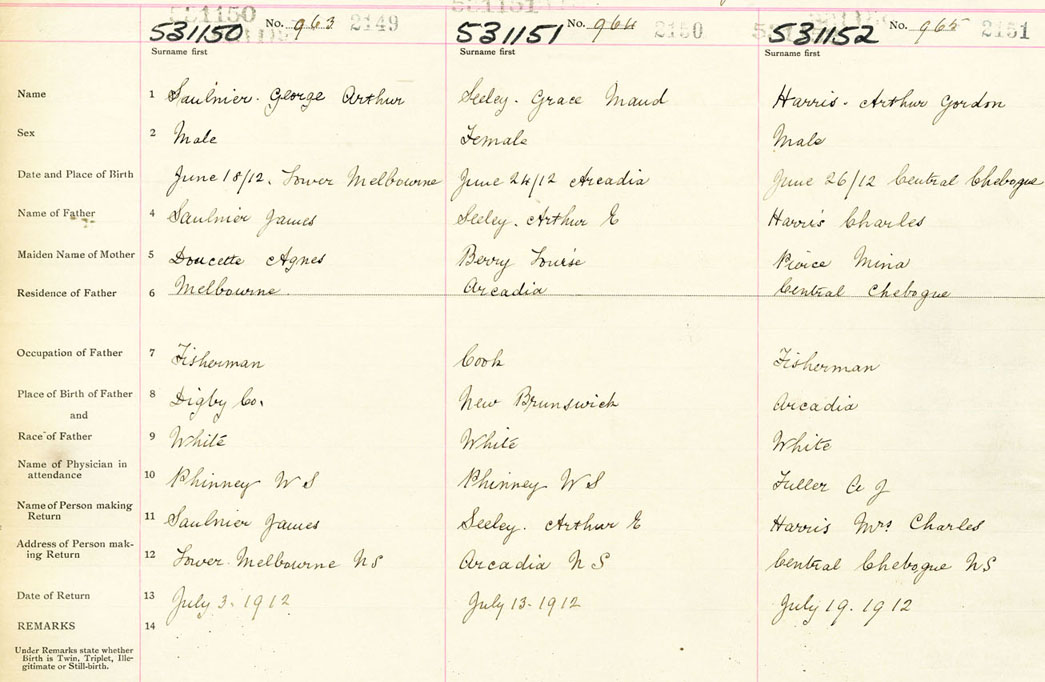 531150 No. 963 2149 531151 No. 964 2150 531152 No. 965 2151
Surname first Surname first Surname first
Name 1 Saulnier. George Arthur Seeley. Grace Maud Harris. Arthur Gordon
Sex 2 Male Female Male
Date and Place of Birth June 18/12. Lower Melbourne June 24/12 Arcadia June 26/12 Central Chebogue
Name of Father 4 Saulnier James Seeley. Arthur E Harris Charles
Maiden Name of Mother 5 Doucette Agnes Berry Louise Peirce Mina
Residence of Father 6 Melbourne Arcadia Central Chebogue
Occupation of Father 7 Fisherman Cook Fisherman
Place of Birth of Father 8 Digby Co. New Brunswick Arcadia
and
Race of Father 9 White White White
Name of Physician in
attendance 10 Phinney W S Phinney W S Fuller J
Name of Person making
Return 11 Saulnier James Seeley. Arthur E Harris Mrs Charles
Address of Person mak-
ing Return 12 Lower Melbourne NS Arcadia N S Central Chebogue NS
Date of Return 13 July 3. 1912 July 13. 1912 July 19. 1912
REMARKS 14
Under Remarks state whether
Birth is Twin, Triplet, Ille-
gitimate or Still-birth.